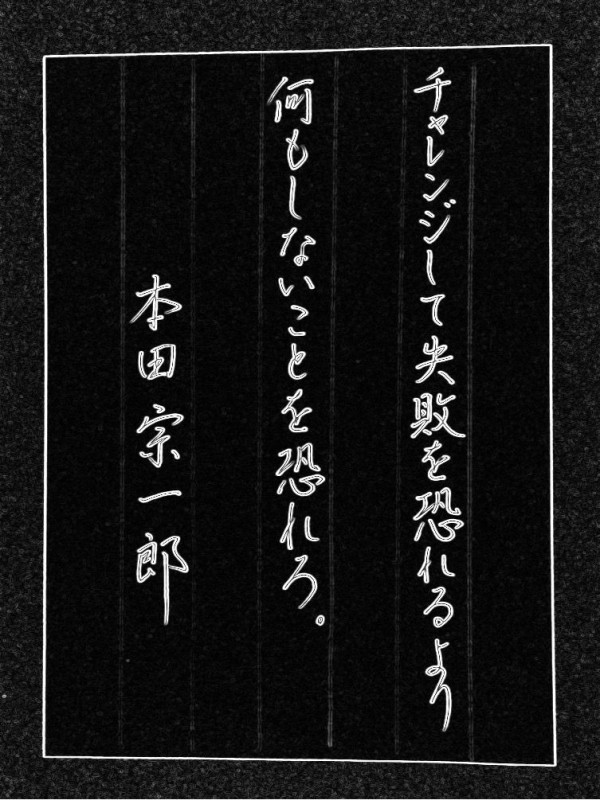 チャレンジして失敗を恐れるより
何もしないことを恐れろ。
本田宗一郎